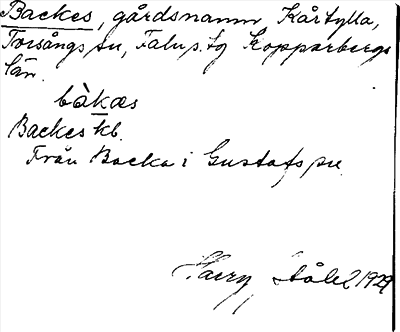 Backes, gårdsnamn Kårtylla,
Torsångs sn, Falu s. tg Kopparbergs
län.
bàkæs
Backes kb.
Från Backa i Gustafs sn.
Harry Ståhl 1929